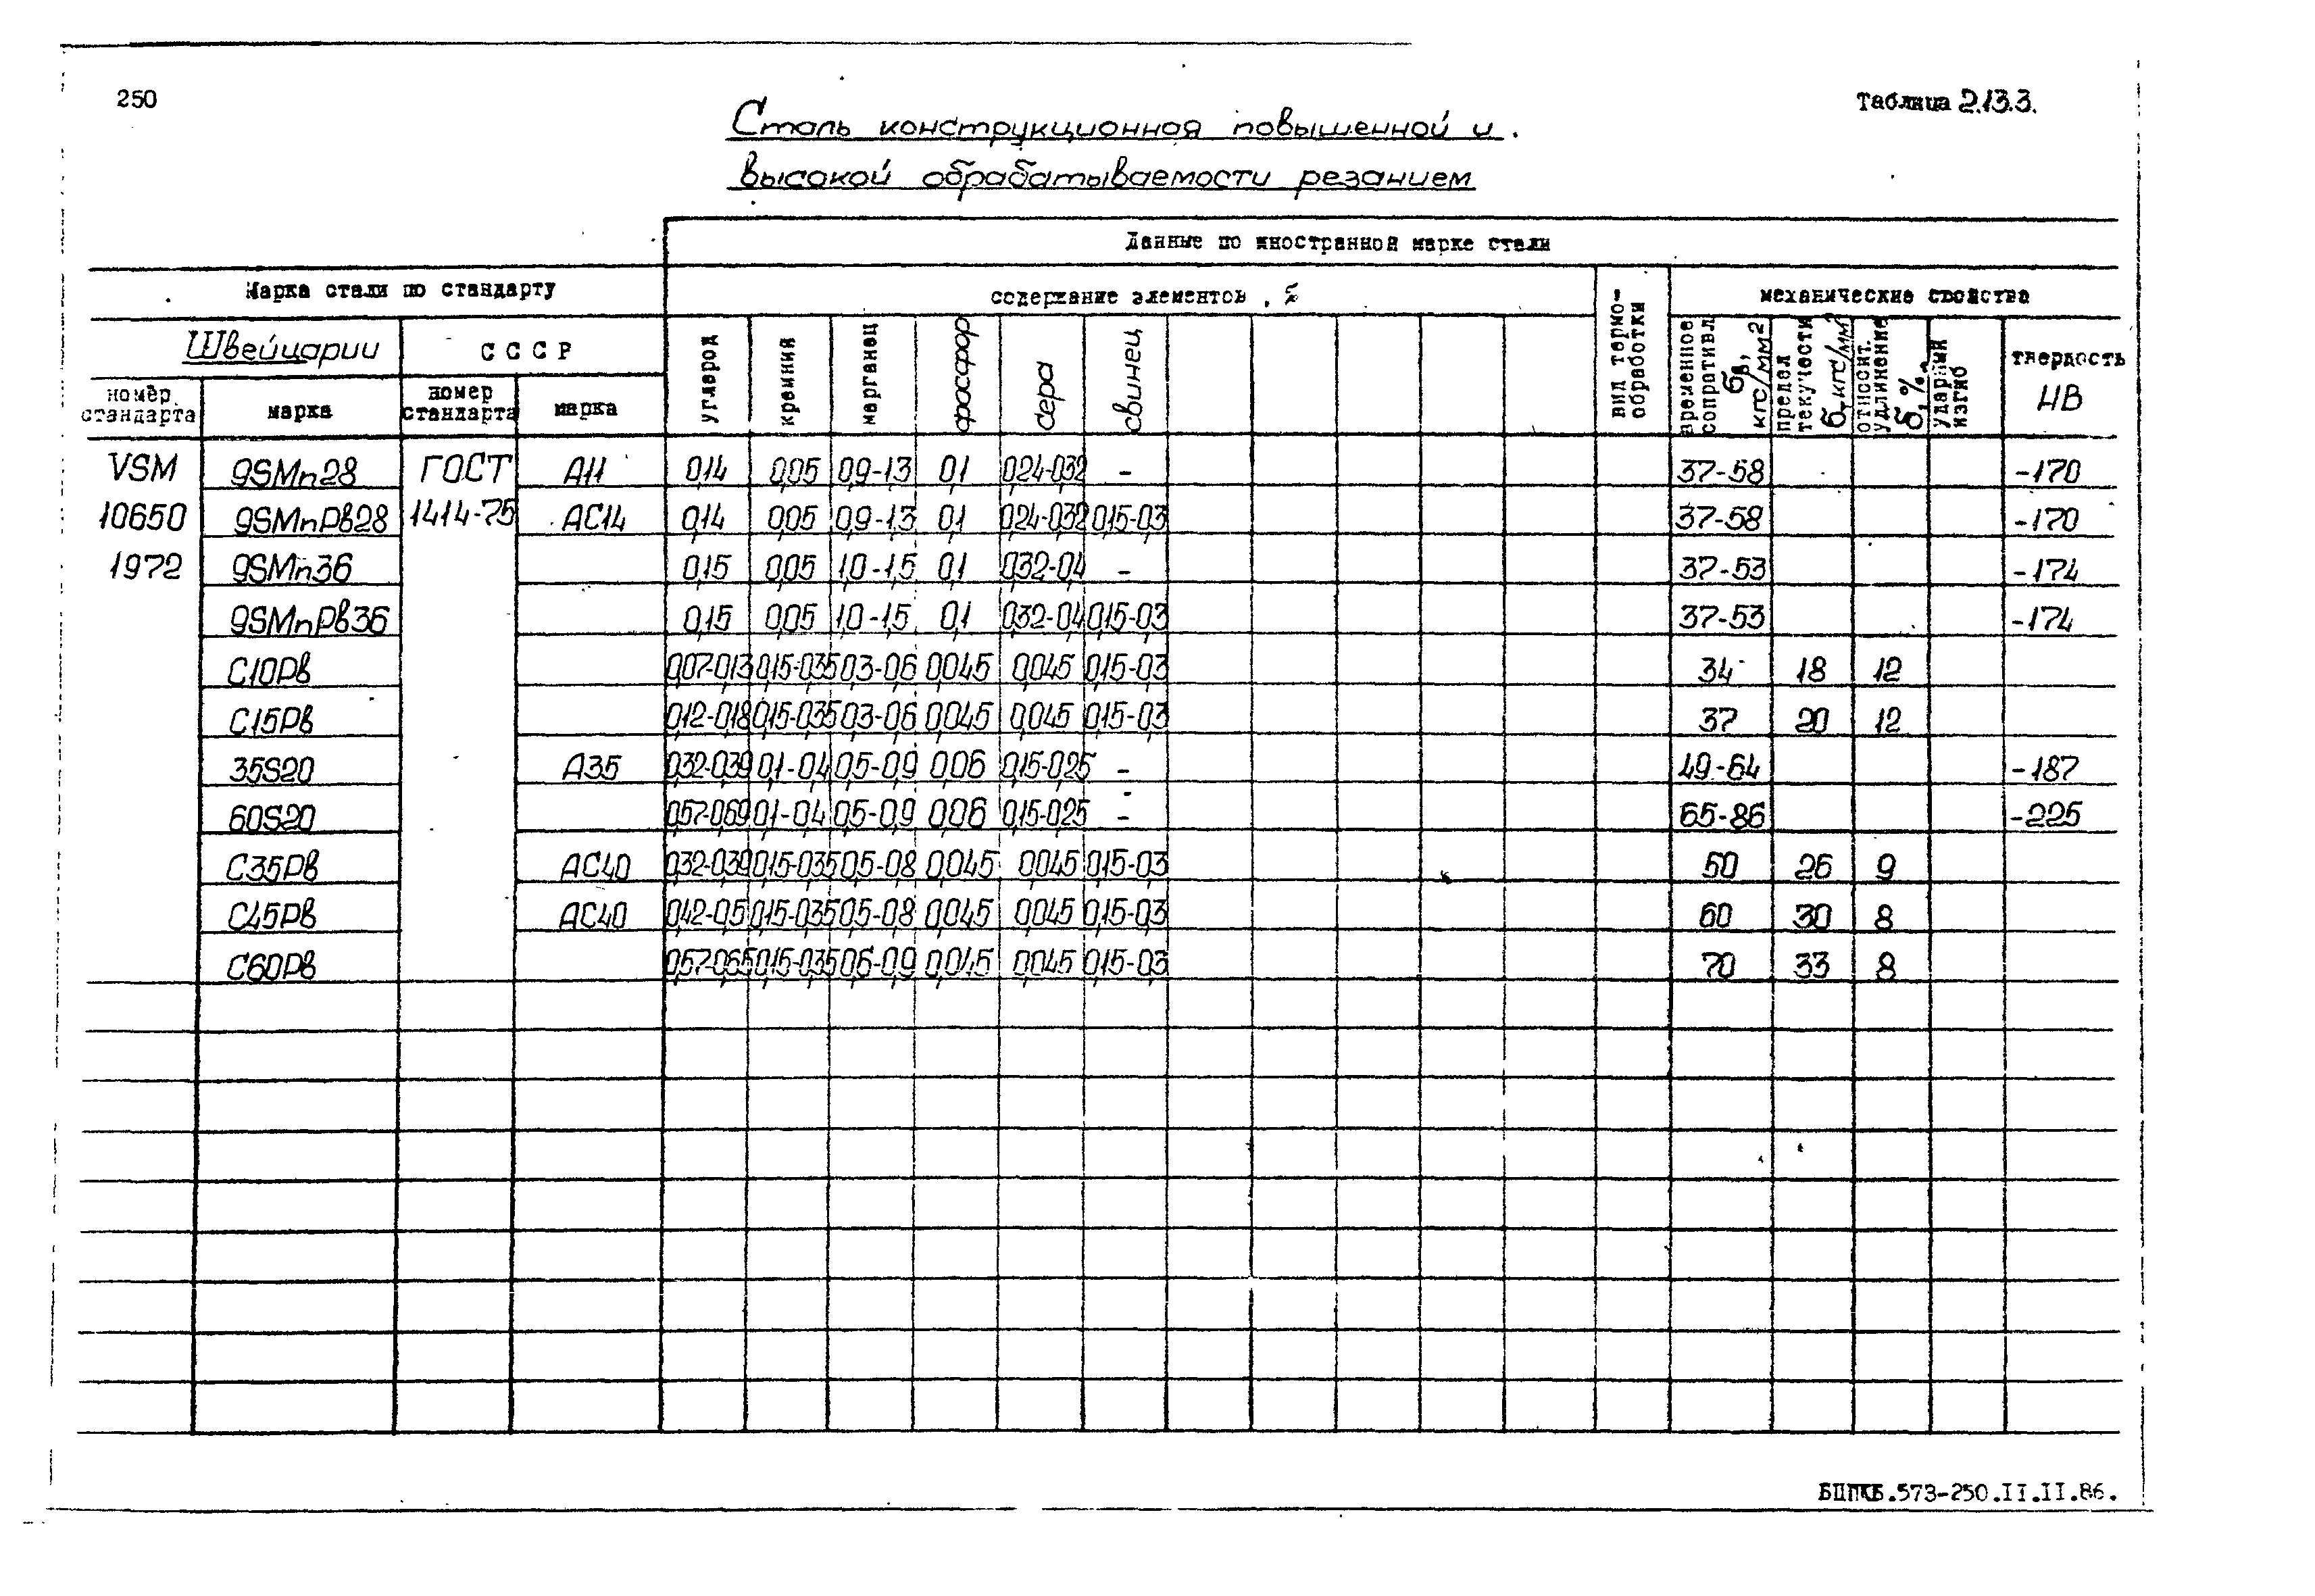 250
Таблица 2.13.3.
Сталь конструкционная повышенной и
высокой обрабатываемости резанием
Данные по иностранной марке стали
Марка стали по стандарту
содержание элементов, %
вид термо-
обработки
механические свойства
Швейцарии
СССР
углерод
кремния
марганец
фосфор
сера
свинец
временное
сопротивл.
бв,
кгс/мм2
предел
текучести
бт кгс/мм2
относит.
удлинение
б, %
ударный
изгиб
твердость
HB
номер
стандарта
марка
номер
стандарта
марка
VSM 9SMn28 ГОСТ А11 0,14 0,05 0,9-1,3 0,1 0,24-0,32 - 37-58 -170
10650 9SMnPb28 1414-75 АС14 0,14 0,05 0,9-1,3 0,1 0,24-0,32 0,15-0,3 37-58 -170
1972 9SMn36 0,15 0,05 1,0-1,5 0,1 0,32-0,4 - 37-53 -174
9SMnPb36 0,15 0,05 1,0-1,5 0,1 0,32-0,4 0,15-0,3 37-53 -174
C10Pb 0,07-0,13 0,15-0,35 0,3-0,6 0,045 0,045 0,15-0,3 34 18 12
C15Pb 0,12-0,18 0,15-0,35 0,3-0,6 0,045 0,045 0,15-0,3 37 20 12
35S20 А35 0,32-0,39 0,1-0,4 0,5-0,9 0,06 0,15-0,25 - 49-64 -187
60S20 0,57-0,69 0,1-0,4 0,5-0,9 0,06 0,15-0,25 - 65-86 -225
C35Pb АС40 0,32-0,39 0,15-0,35 0,5-0,8 0,045 0,045 0,15-0,3 50 26 9
C45Pb АС40 0,42-0,5 0,15-0,35 0,5-0,8 0,045 0,045 0,15-0,3 60 30 8
C60Pb 0,57-0,65 0,15-0,35 0,6-0,9 0,045 0,045 0,15-0,3 70 33 8
БЦПКБ.573-250.II.II.86.